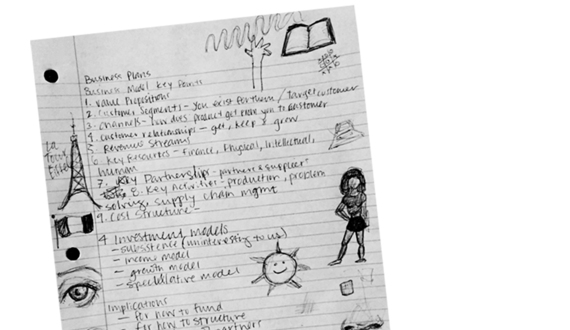 Business Plans
Business Model Key Points
1. Value Propositions
2. Customer Segments - you exist for them / Target customer
3. Channels - how does product get from you to customer
4. customer relationships - get, keep & grow
5. Revenue Streams
6. Key Resources - Finance, Physical, Intellectual,
human
7. Key Partnership - partners & supplier
8. Key Activities - production, problem
solving, supply chain mgmt
9. Cost Structure -
La
Tour
Eiffel
4 Investment models
- subsistence (uninteresting to us)
- income model
- growth model
- speculative model
Implications
- for how to fund
- for how to structure
partners